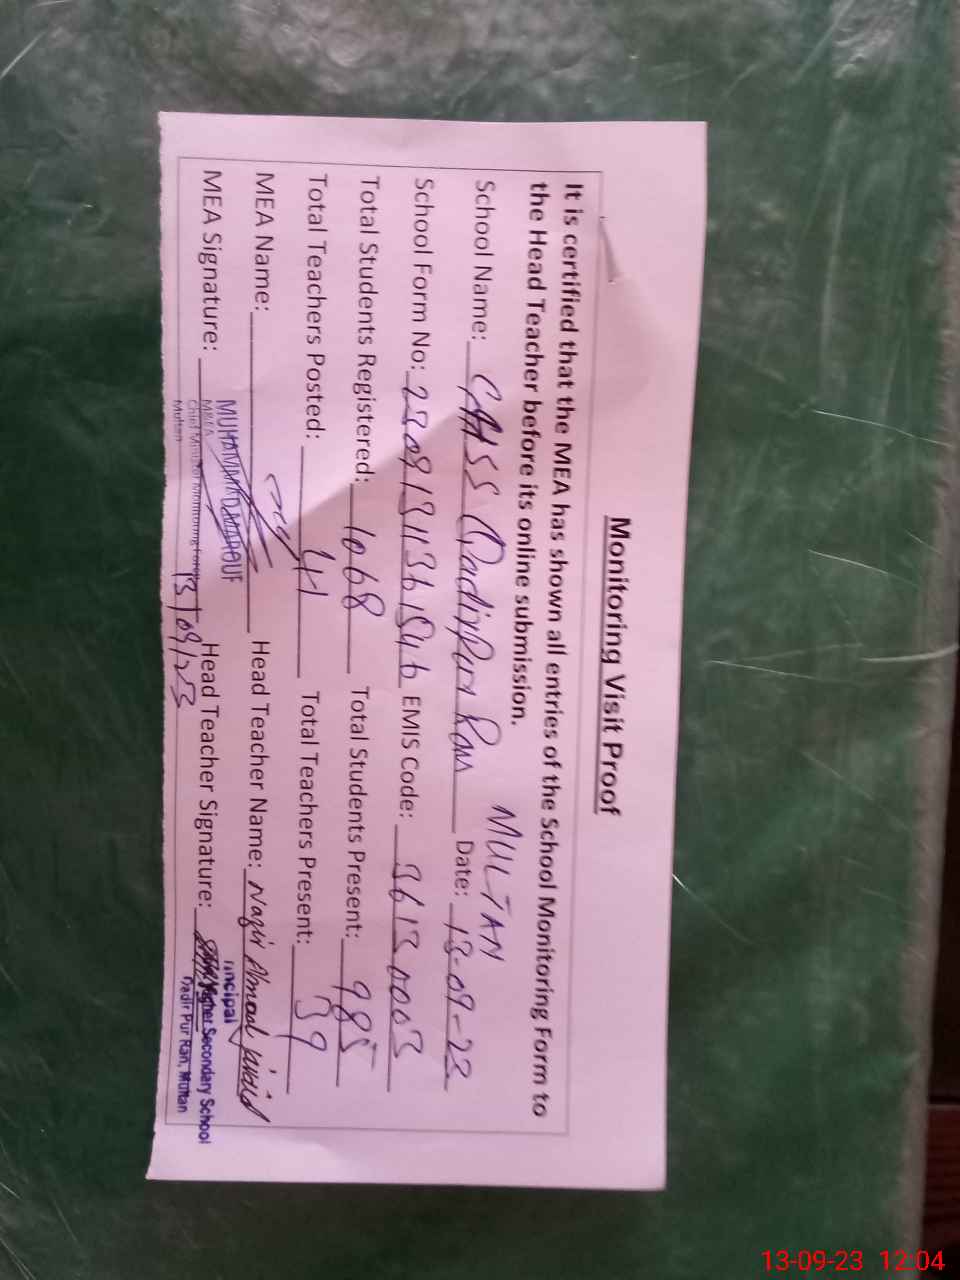 Monitoring Visit Proof
It is certified that the MEA has shown all entries of the School Monitoring Form to
the Head Teacher before its online submission.
MULTAN
School Name: GHSS Qadirpur Ran Date: 13-09-23
School Form No: 2309131136151546 EMIS Code: 36130003
Total Students Registered: 1068 Total Students Present: 985
Total Teachers Posted: 41 Total Teachers Present: 39
MEA Name: Head Teacher Name: Nazir Ahmad Javid
MUHAMMAD MAROUF
MEA Signature: Head Teacher Signature:
M&EA
Chief Minister Monitoring Force
Multan
13/09/23
rincipal
Higher Secondary School
Qadir Pur Ran, Multan
13-09-23 12:04